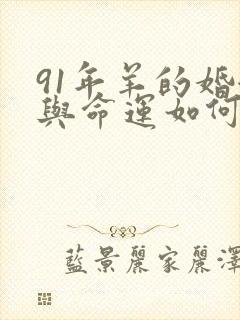 91年羊的婚
與命運如何
藍景麗家麗澤